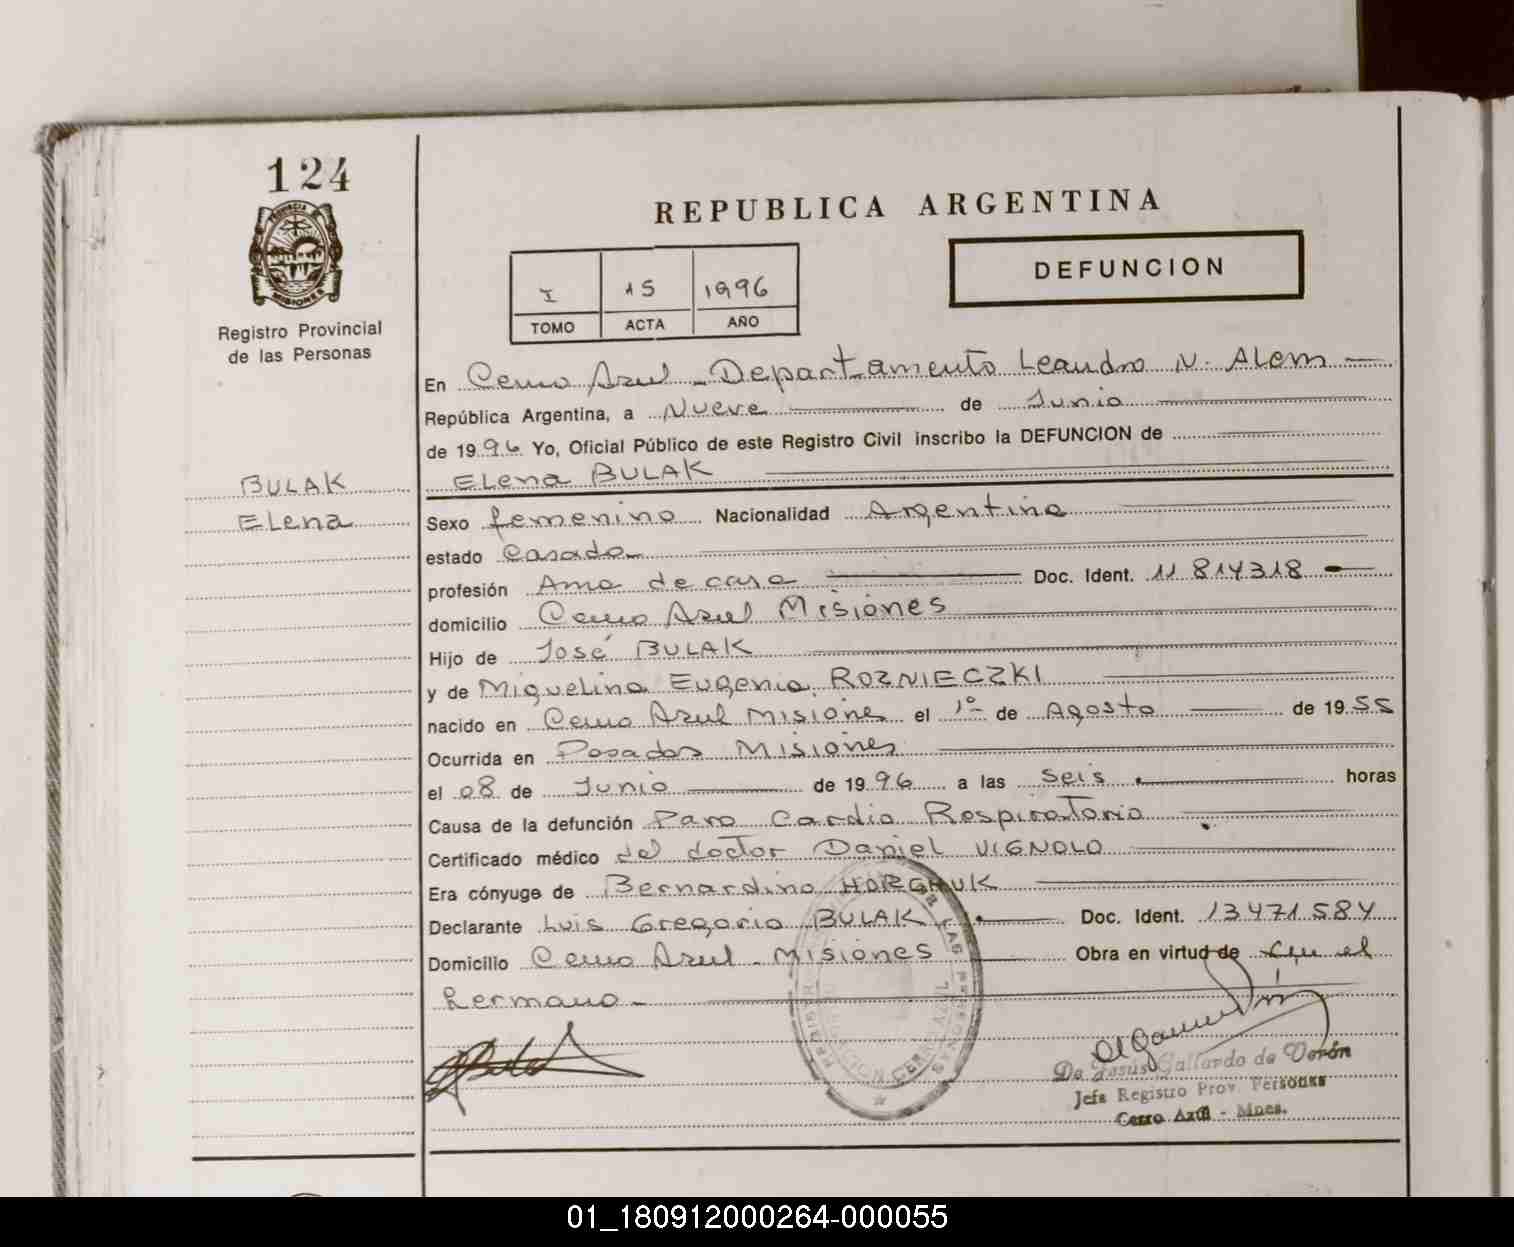 124
PROVINCIA DE
MISIONES
Registro Provincial
de las Personas
REPUBLICA ARGENTINA
DEFUNCION
I 15 1996
TOMO ACTA AÑO
En Cerro Azul - Departamento Leandro N. Alem
República Argentina, a Nueve de Junio
de 1996 Yo, Oficial Público de este Registro Civil inscribo la DEFUNCION de
BULAK Elena BULAK
Elena Sexo femenino Nacionalidad Argentina
estado Casada
profesión Ama de casa Doc. Ident. 11 814318
domicilio Cerro Azul Misiones
Hijo de José BULAK
y de Miguelina Eugenia ROZNIECZKI
nacido en Cerro Azul Misiones el 1º de Agosto de 1955
Ocurrida en Posadas Misiones
el 08 de Junio de 1996 a las Seis horas
Causa de la defunción Paro Cardio Respiratorio
Certificado médico del doctor Daniel VIGNOLO
Era cónyuge de Bernardino HORCHUK
Declarante Luis Gregorio BULAK Doc. Ident. 13471584
Domicilio Cerro Azul - Misiones Obra en virtud de
hermano
De Jesús Gallardo de Verón
Jefa Registro Prov. Personas
Cerro Azul - Mnes.
01_180912000264-000055